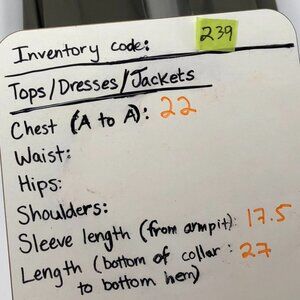 Inventory code: 239
Tops/Dresses/Jackets
Chest (A to A): 22
Waist:
Hips:
Shoulders:
Sleeve length (from armpit): 17.5
Length (bottom of collar : 27
to bottom hem)